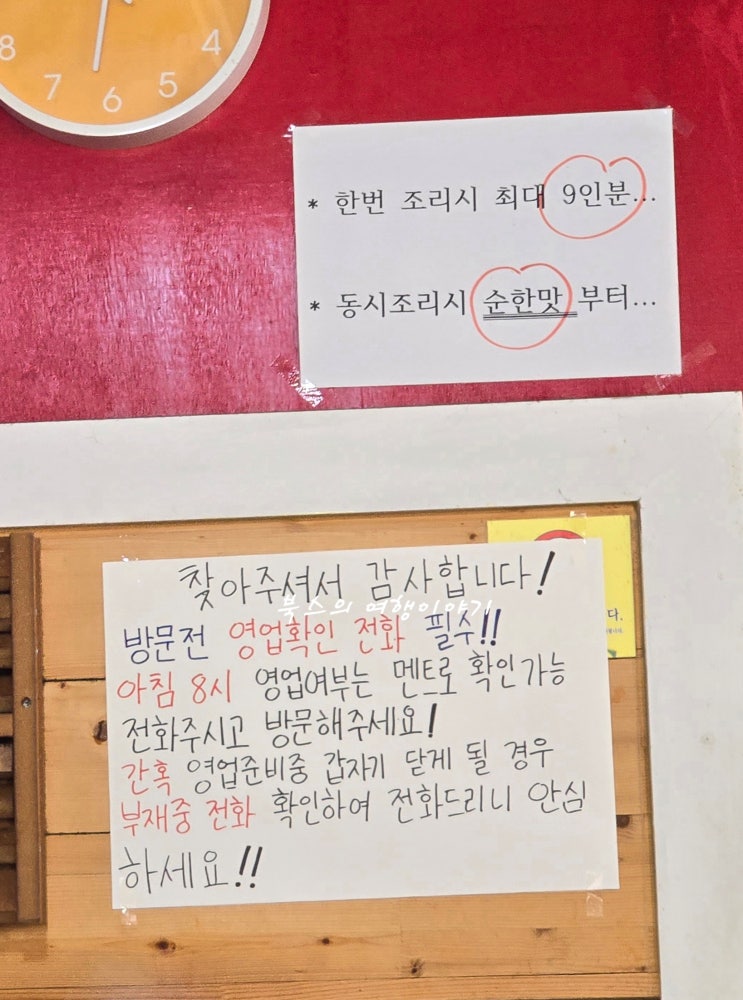 8 7 6 5 4
* 한번 조리시 최대 9인분...
* 동시조리시 순한맛 부터...
찾아주셔서 감사합니다!
북스의 여행이야기
방문전 영업확인 전화 필수!!
아침 8시 영업여부는 멘트로 확인가능
전화주시고 방문해주세요!
간혹 영업준비중 갑자기 닫게 될 경우
부재중 전화 확인하여 전화드리니 안심
하세요!!
다.